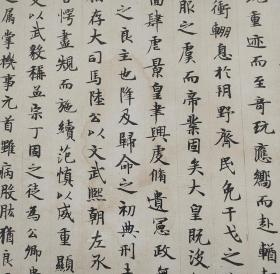 重迹而至奇玩應嚮而赴輶
衝輣息於朔野齊民免干戈之
服之虞而帝業固矣大皇既沒
回肆虐景皇聿興虔脩遺憲政無
之良主也降及歸命之初典刑未
存大司馬陸公以文武熙朝左丞
愕盡規而施績范慎以威重顯
以武毅稱孟宗丁固之徒為公卿
之屬掌機事元首雖病股肱猶良